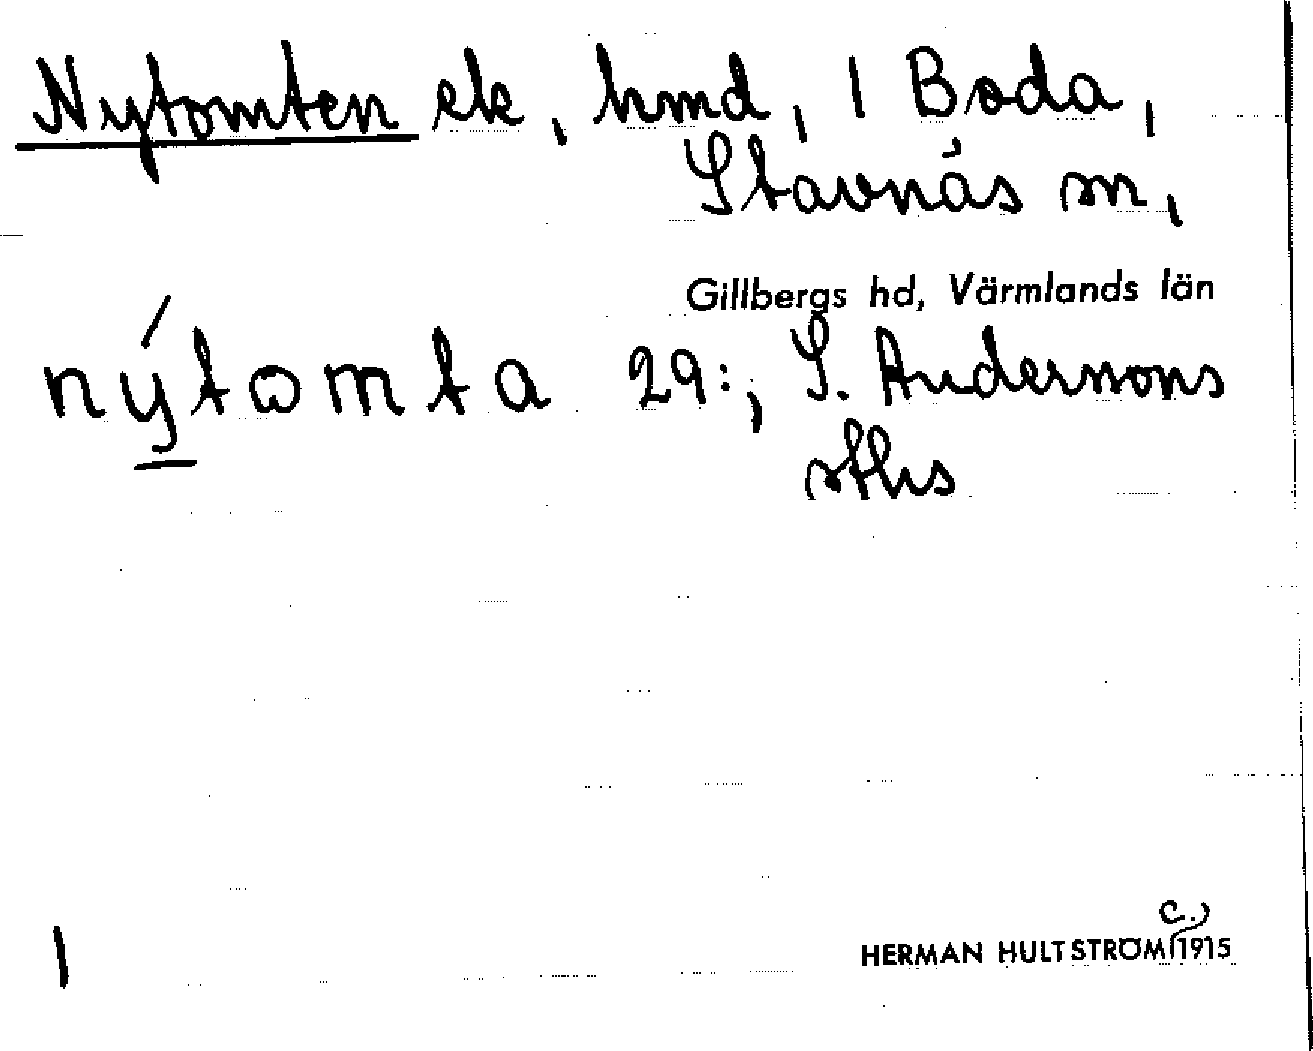 Nytomten ek, hmd, 1 Boda,
Stavnäs sn,
Gillbergs hd, Värmlands län
nýtomta 29:, S. Anderssons
sths
c.)
1 HERMAN HULTSTRÖM 1915